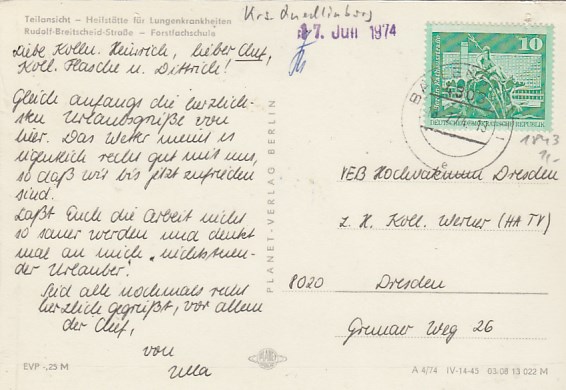 Teilansicht – Heilstätte für Lungenkrankheiten
Rudolf-Breitscheid-Straße – Forstfachschule
Krs. Quedlinburg
17. Juli 1974
Liebe Kolln. Heinrich, lieber Chef,
Koll. Flasche u. Dittrich!
Gleich anfangs die herzlich-
sten Urlaubsgrüße von
hier. Das Wetter meint es
eigentlich recht gut mit uns,
so daß wir bis jetzt zufrieden
sind.
Laßt Euch die Arbeit nicht
so sauer werden und denkt
mal an mich „nichtstuen-
der Urlauber“.
Seid alle nochmals recht
herzlich gegrüßt, vor allem
der Chef,
von
Ulla
PLANET-VERLAG BERLIN
PLANET
EVP -,25 M
10
DEUTSCHE DEMOKRATISCHE REPUBLIK
1843
1,-
VEB Hochvakuum Dresden
z. H. Koll. Werner (HA TV)
8020 Dresden
Grunaer Weg 26
A 4/74 IV-14-45 03 08 13 022 M